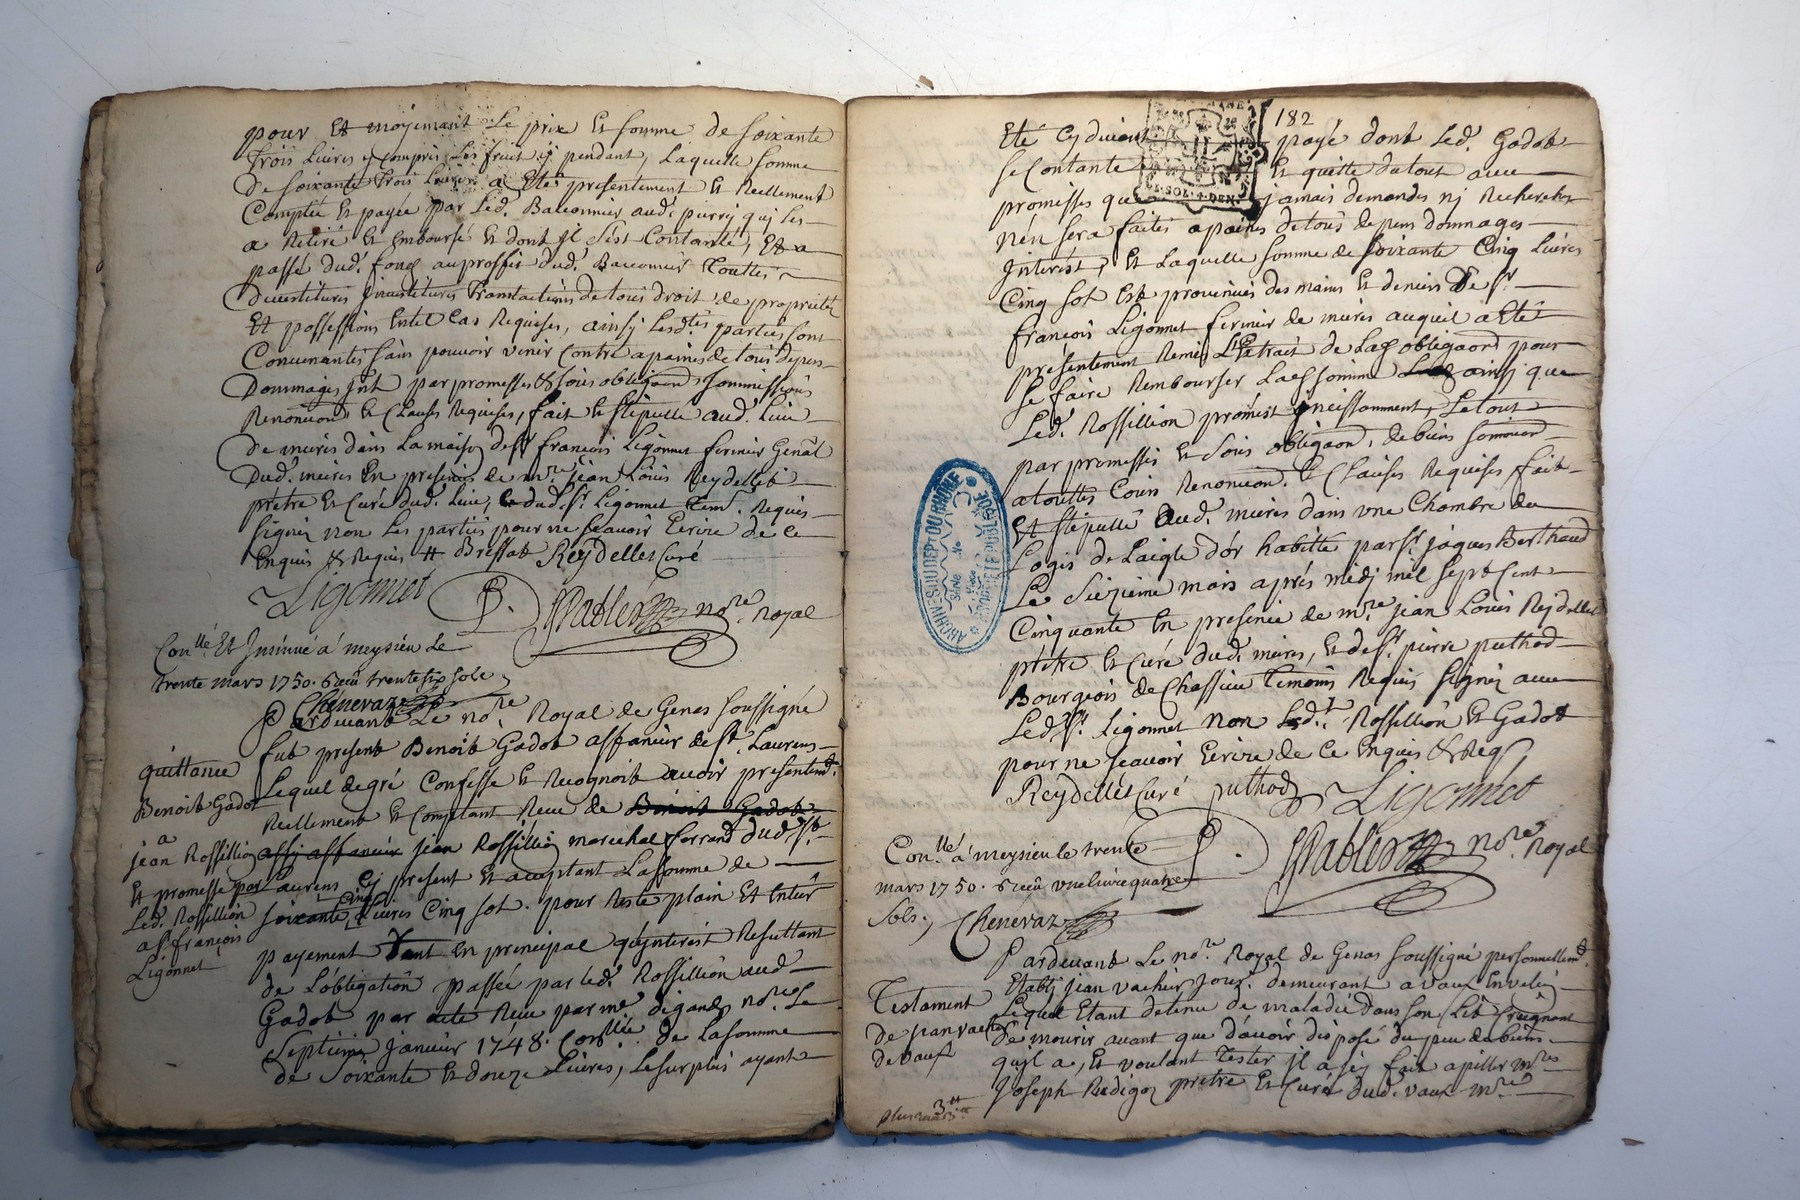 pour Et moyennant Le prix Et somme de soixante
trois Livres y compris Les fruit y pendant, Laquelle somme
De soixante trois Livres a Eté presentement Et Reellement
Comptée Et payée par Led. Baconnier aud. purry qui Les
a Retiré Et Emboursé Et dont jl s'est Contanté, Et a
passé dud. fond au proffit dud. Baconnier Touttes
Devestitures jnvestitures Translations de tous droit de proprietéz
Et possessions Entel Cas Requises, ainsy Lesd.tes parties sont
Convenantes sans pouvoir venir Contre a paines de tous depens
Dommages jnt par promesses & sous obligaon soummissions
Renoncion & Clauses Requises, fait & stipullé aud. Lieu
De mures dans La maison de sr françois Ligonnet fermier Genal
Dud. mures En presence de mre jean Louis Reydellet
prêtre Et Curé dud. Lieu, & dud. sr Ligonnet Tem. Requis
signez non Les parties pour ne sçavoir Ecrire de ce
Enquis & Requis Bressat Reydellet Curé
Ligonnet nore. Royal
Con.llé Et Insinué á meysieu Le
trente mars 1750. Receu trente six sols
Chénevaz
Pardevant Le nore Royal de Genas soussigné
fut present Benoit Gadot affaneur de St. Laurens
quittance
Lequel degré Confesse & Recognoit avoir presentemt
Benoit Gadot
Reellement Et Comptant Receu de Benoit Gadot
a
jean Rossillion
affij affaneur jean Rossillion marechal ferrand dud. St.
Et promesse par
Laurens Cy present Et acceptant La somme de
Led. Rossillion
soixante Cinq Livres Cinq sot. pour Reste plain Et Entier
a sr françois
Ligonnet
payement Tant En principal qu'jnterest Resultant
de L'obligation passée par Led. Rossillion aud.
Gadot par acte Receu par me. digand nore Le
Septieme Janvier 1748. Conllée. de La somme
de Soixante Et douze Livres, Le surplus ayant
182
Eté Cy devant payé dont Led. Gadot
se Contante Et quitte du tout avec
promisses que jamais demandes nj Recherches
n'en sera faites a paines de tous depens dommages
jnterest, Et Laquelle somme de soixante Cinq Livres
Cinq sot Est provenües des mains Et deniers De sr.
françois Ligonnet fermier de mures auquel a Eté
présentement Remis L'Extrait de Lad obligaon pour
se faire Rembourser Lad somme ainsy que
Led. Rossillion promest jncessamment, Le tout
par promesses Et sous obligaon. de biens soumission
a touttes Cours Renoncion. & Clauses Requises fait
Et stipullé Aud. mures dans une Chambre du
Logis de L'aigle d'ór habitté par sr jaques Berthaud
Le Seizieme mars aprés midj mil sept Cent
Cinquante En presence de mre jean Louis Reydellet
prêtre Et Curé dud. mures, Et de sr. pierre puthod
Bourgeois de Chassieu Temoins Requis signéz avec
Led. Sr. Ligonnet non Lesd. Rossillion Et Gadot
pour ne sçavoir Ecrire de ce Enquis & Req
Reydellet Curé puthod Ligonnet
nore. Royal
Con.llé á meysieu le trente
mars 1750. Receu une livre quatre
Sols. Chénevaz
Pardevant Le nore. Royal de Genas soussigné personnellemt
Etably jean vachier jour. demeurant a vaux En velin
Testament
Lequel Etant detenu de maladie dans son Lit Craignant
de jean vach
De mourir avant que d'avoir disposé du peu de biens
de vaux
qu'jl a, Et voulant Tester jl a sy fait apeller mres
Joseph Redigoz prêtre Et Curé dud. vaux mre
3tt
ARCHIVES DU DEPT DU RHÔNE
SOL 4 DEN